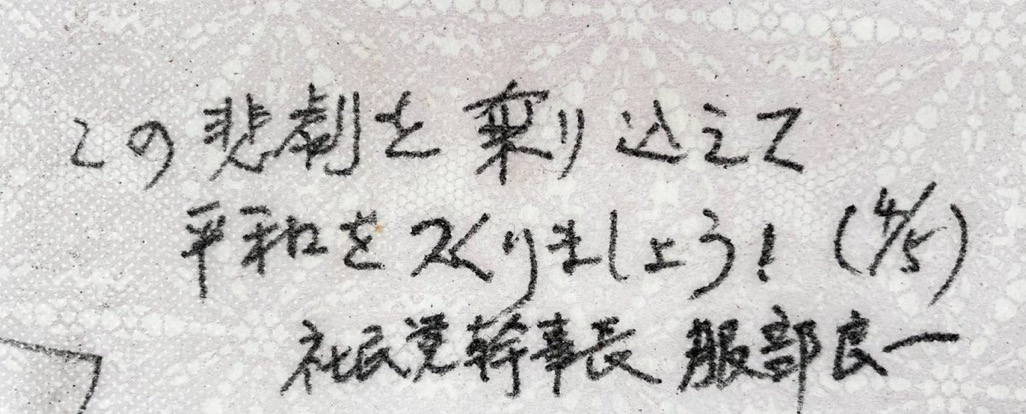 この悲劇を乗り込えて
平和をつくりましょう！（4/5）
社民党幹事長 服部良一